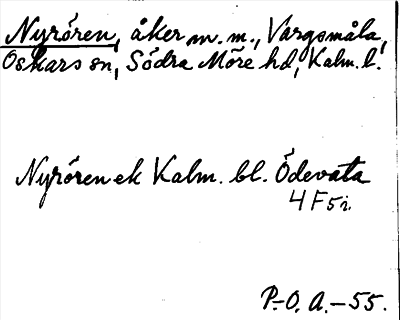 Nyrören, åker m.m., Vargsmåla,
Oskars sn, Södra Möre hd, Kalm. l.
Nyrören ek Kalm. bl. Ödevata
4 F 5 i.
P.-O. A. - 55.